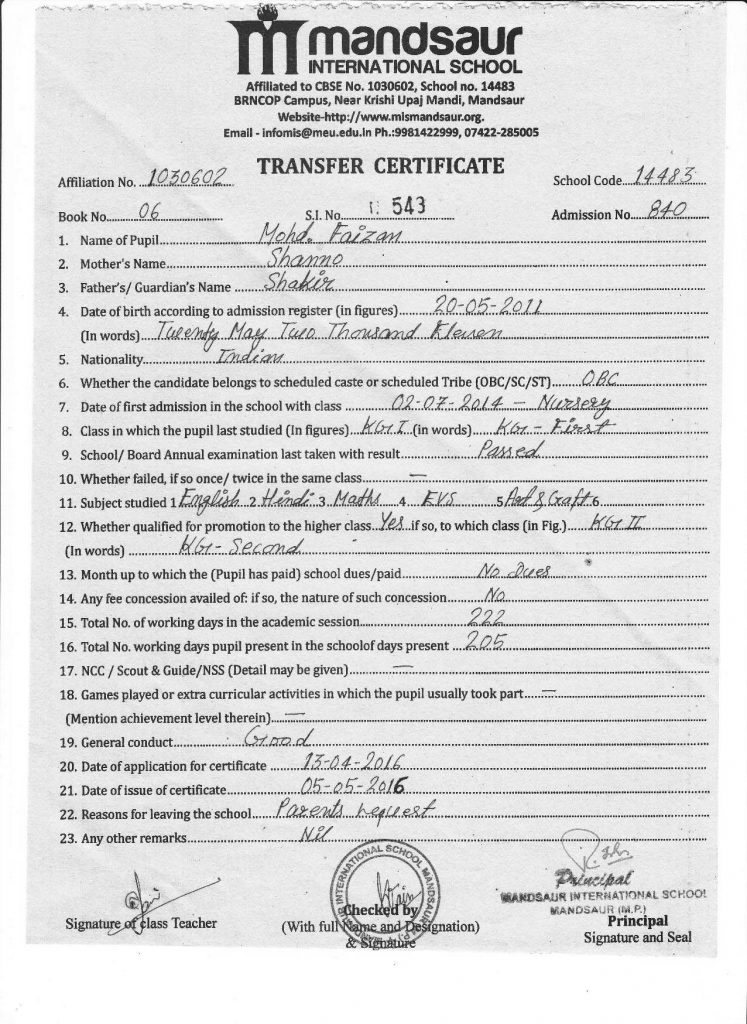 mandsaur
INTERNATIONAL SCHOOL
Affiliated to CBSE No. 1030602, School no. 14483
BRNCOP Campus, Near Krishi Upaj Mandi, Mandsaur
Website-http://www.mismandsaur.org.
Email - infomis@meu.edu.in Ph.:9981422999, 07422-285005
TRANSFER CERTIFICATE
Affiliation No. 1030602 School Code 14483
Book No. 06 S.I. No. 543 Admission No. 840
1. Name of Pupil Mohd. Faizan
2. Mother's Name Shanno
3. Father's/ Guardian's Name Shakir
4. Date of birth according to admission register (in figures) 20-05-2011
(In words) Twenty May Two Thousand Eleven
5. Nationality Indian
6. Whether the candidate belongs to scheduled caste or scheduled Tribe (OBC/SC/ST) OBC
7. Date of first admission in the school with class 02-07-2014 - Nursery
8. Class in which the pupil last studied (In figures) KG I (in words) KG - First
9. School/ Board Annual examination last taken with result Passed
10. Whether failed, if so once/ twice in the same class —
11. Subject studied 1 English 2 Hindi 3 Maths 4 EVS 5 Art & Craft 6
12. Whether qualified for promotion to the higher class Yes if so, to which class (in Fig.) KG II
(In words) KG - Second
13. Month up to which the (Pupil has paid) school dues/paid No Dues
14. Any fee concession availed of: if so, the nature of such concession No
15. Total No. of working days in the academic session 222
16. Total No. working days pupil present in the schoolof days present 205
17. NCC / Scout & Guide/NSS (Detail may be given) —
18. Games played or extra curricular activities in which the pupil usually took part —
(Mention achievement level therein) —
19. General conduct Good
20. Date of application for certificate 13-04-2016
21. Date of issue of certificate 05-05-2016
22. Reasons for leaving the school Parents request
23. Any other remarks Nil
INTERNATIONAL SCHOOL MANDSAUR
Principal
MANDSAUR INTERNATIONAL SCHOOL
MANDSAUR (M.P.)
Signature of class Teacher
Checked by
(With full Name and Designation)
& Signature
Principal
Signature and Seal